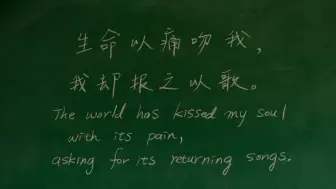 生命以痛吻我，
我却报之以歌。
The world has kissed my soul
with its pain,
asking for its returning songs.